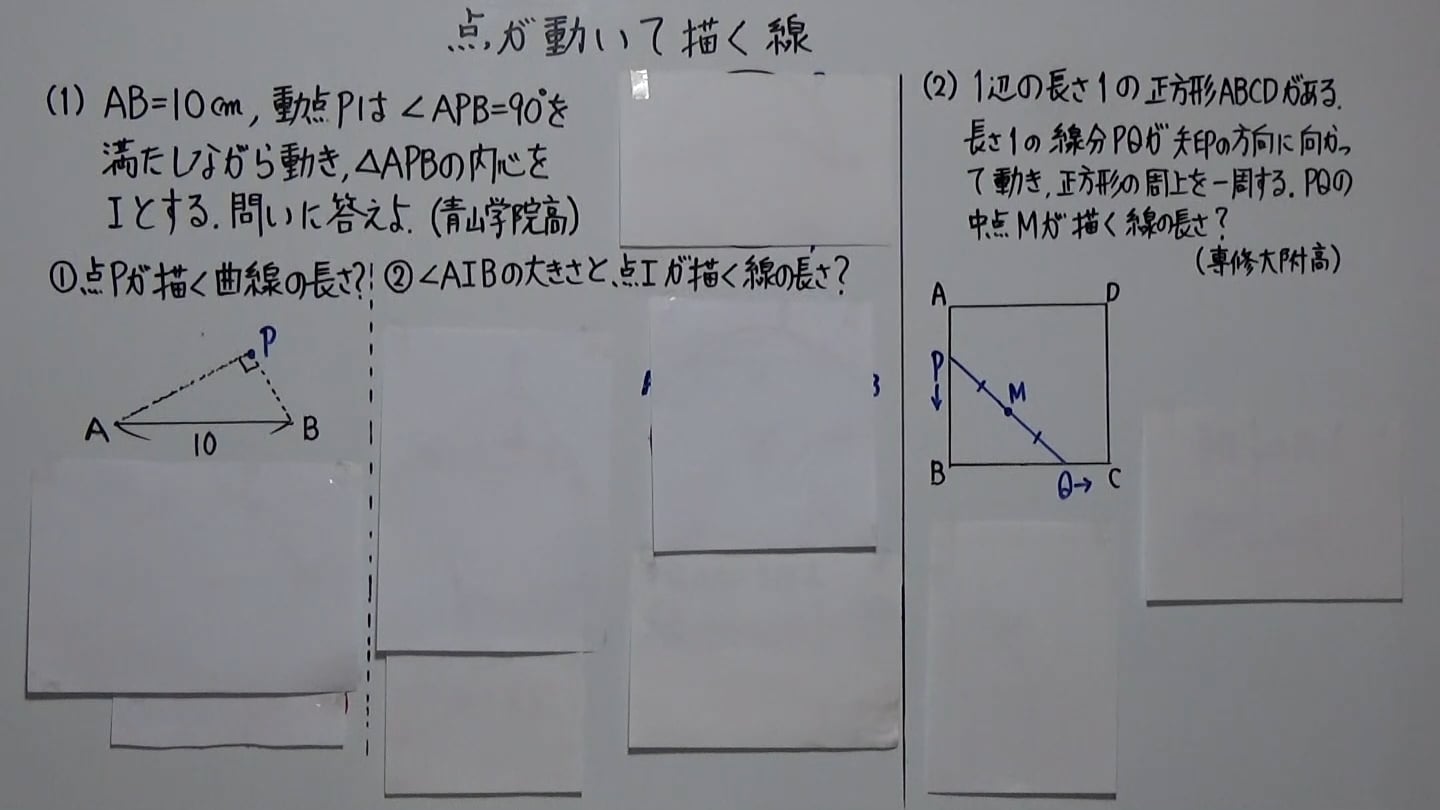 点が動いて描く線
(1) AB=10cm, 動点Pは∠APB=90°を
満たしながら動き, △APBの内心を
Iとする. 問いに答えよ. (青山学院高)
①点Pが描く曲線の長さ?
②∠AIBの大きさと、点Iが描く線の長さ?
P
A
B
10
(2) 1辺の長さ1の正方形ABCDがある.
長さ1の線分PQが矢印の方向に向かっ
て動き, 正方形の周上を一周する. PQの
中点Mが描く線の長さ?
(専修大附高)
A
D
P
↓
M
B
Q→
C